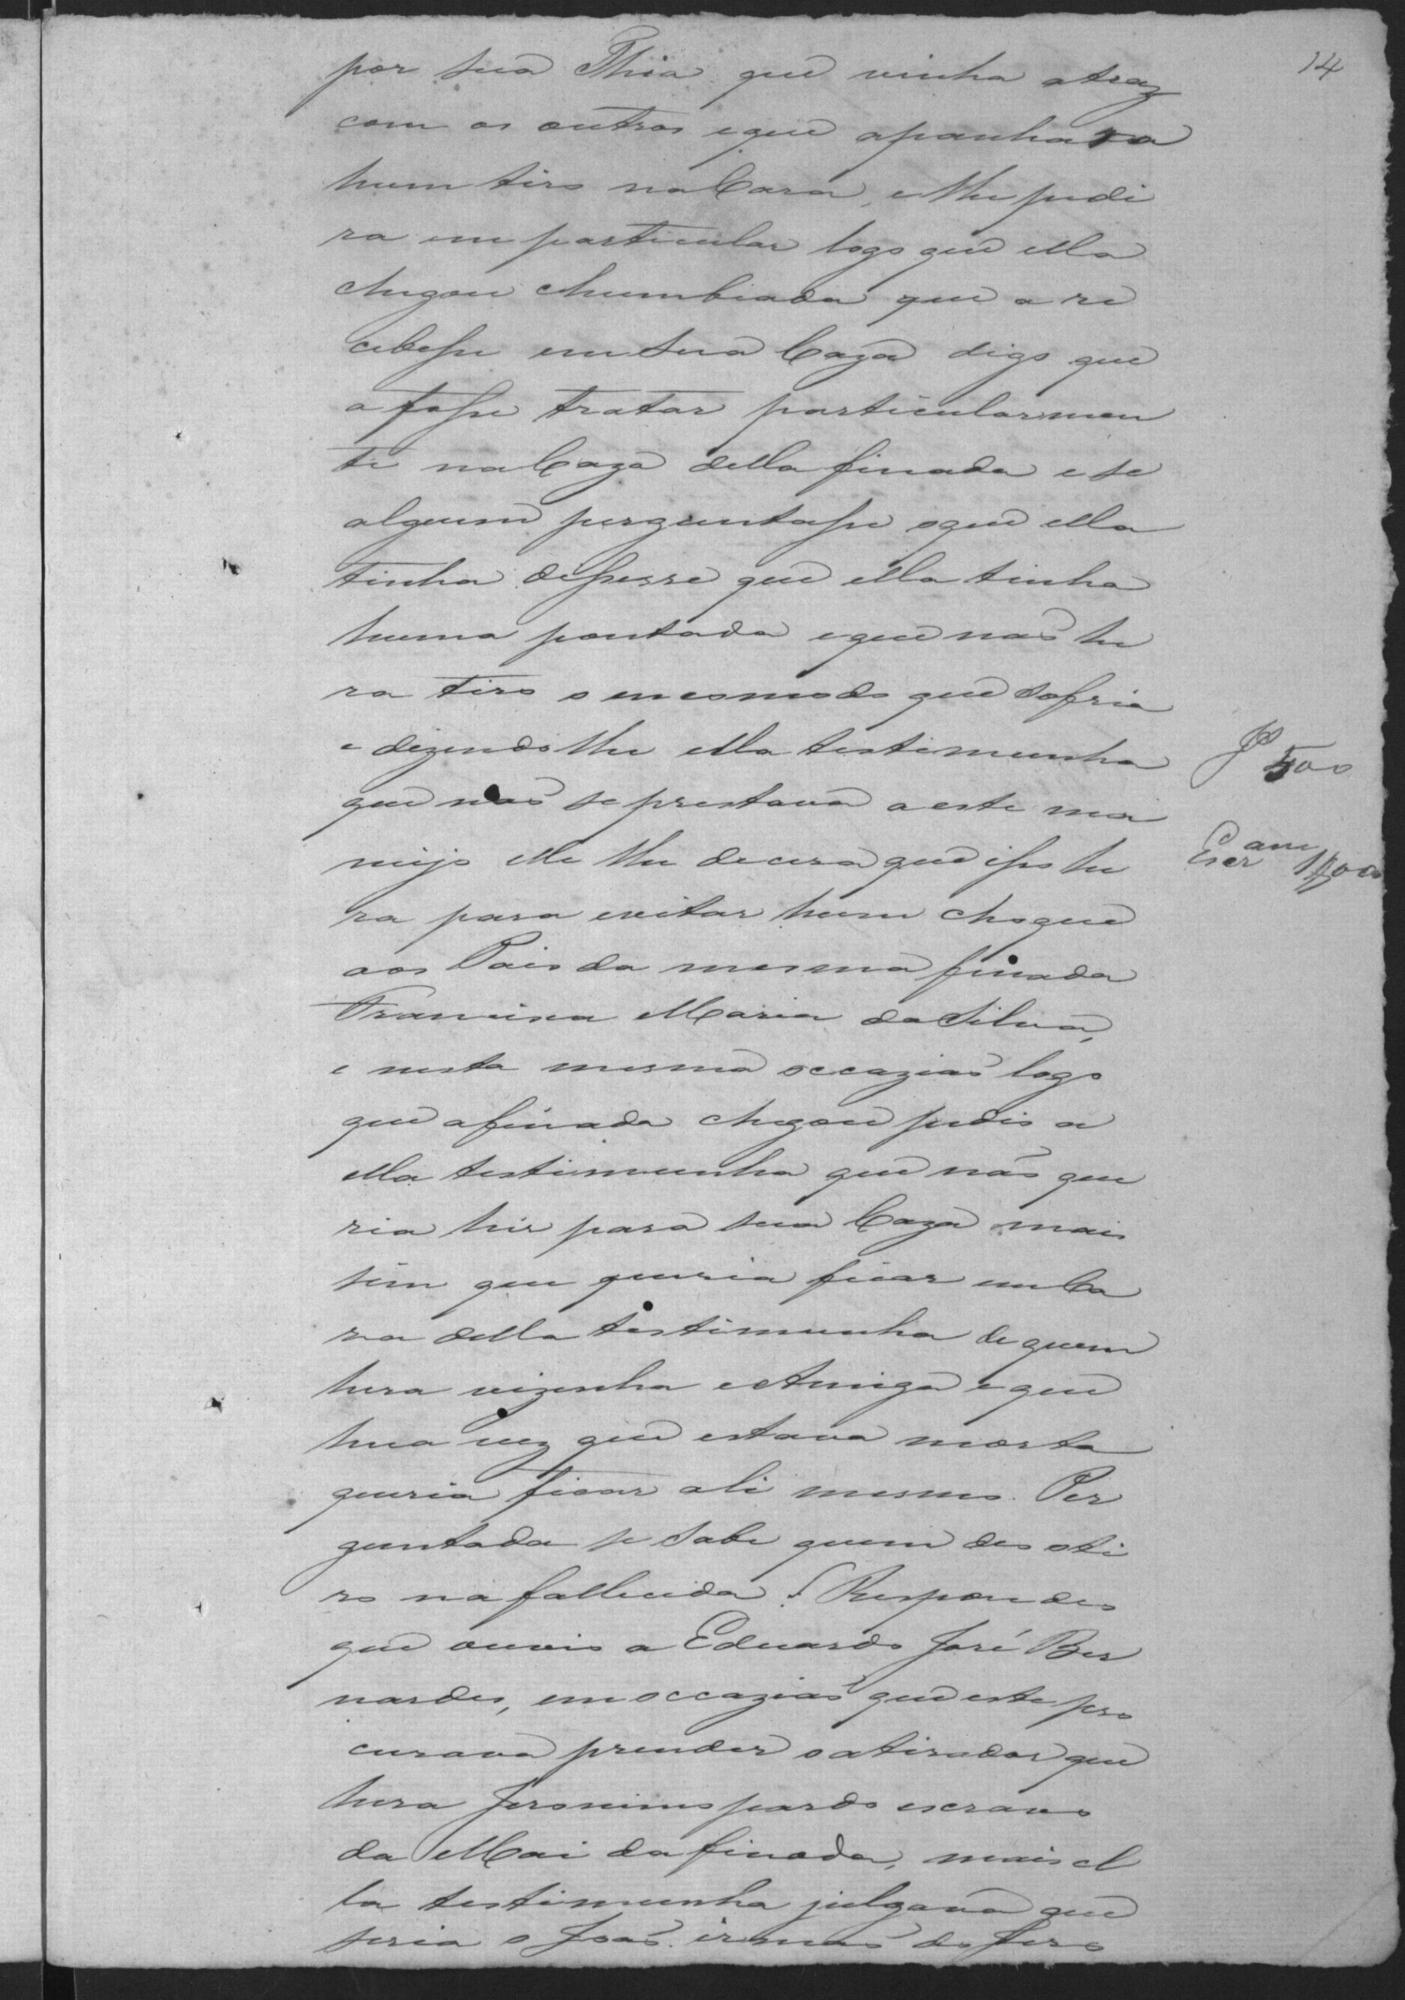 14
por sua Thia que vinha atraz
com os outros e que apanhara
hum tiro na Cara, e lhe pedi
ra em particular logo que ella
chegou chumbiada que a re
cebesse em sua Caza digo que
a fosse tratar particularmen
te na Caza della finada e se
alguem perguntasse o que ella
tinha dissesse que ella tinha
huma pontada e que não he
ra tiro o encomodo que sofria
e dizendo lhe ella testimunha
que não se prestava a este ma
nejo elle lhe decera que isso he
ra para evitar hum choque
aos Pais da mesma finada
Francisca Maria da Silva,
e nesta mesma occazião logo
que a finada chegou pedio a
ella testimunha que não que
ria hir para sua Caza mais
sim que queria ficar em Ca
za della testimunha de quem
hera vizenha e Amiga e que
hua vez que estava morta
queria ficar ali mesmo. Per
guntada se sabe quem deo o ti
ro na fallecida? Respondeo
que ouvio a Eduardo José Ber
nardes, em occazião que este pro
curava prender o atirador que
hera Jeronimo pardo escravo
da Mai da finada, mais el
la testimunha julgava que
seria o João irmão do Jero
Js 500
Escram 1$000